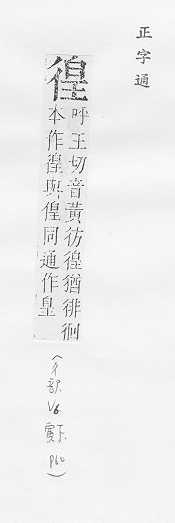 正字通
徨
呼王切音黃彷徨猶徘徊
本作徨與徨同通作皇
(彳部 V6 寅下 P60)